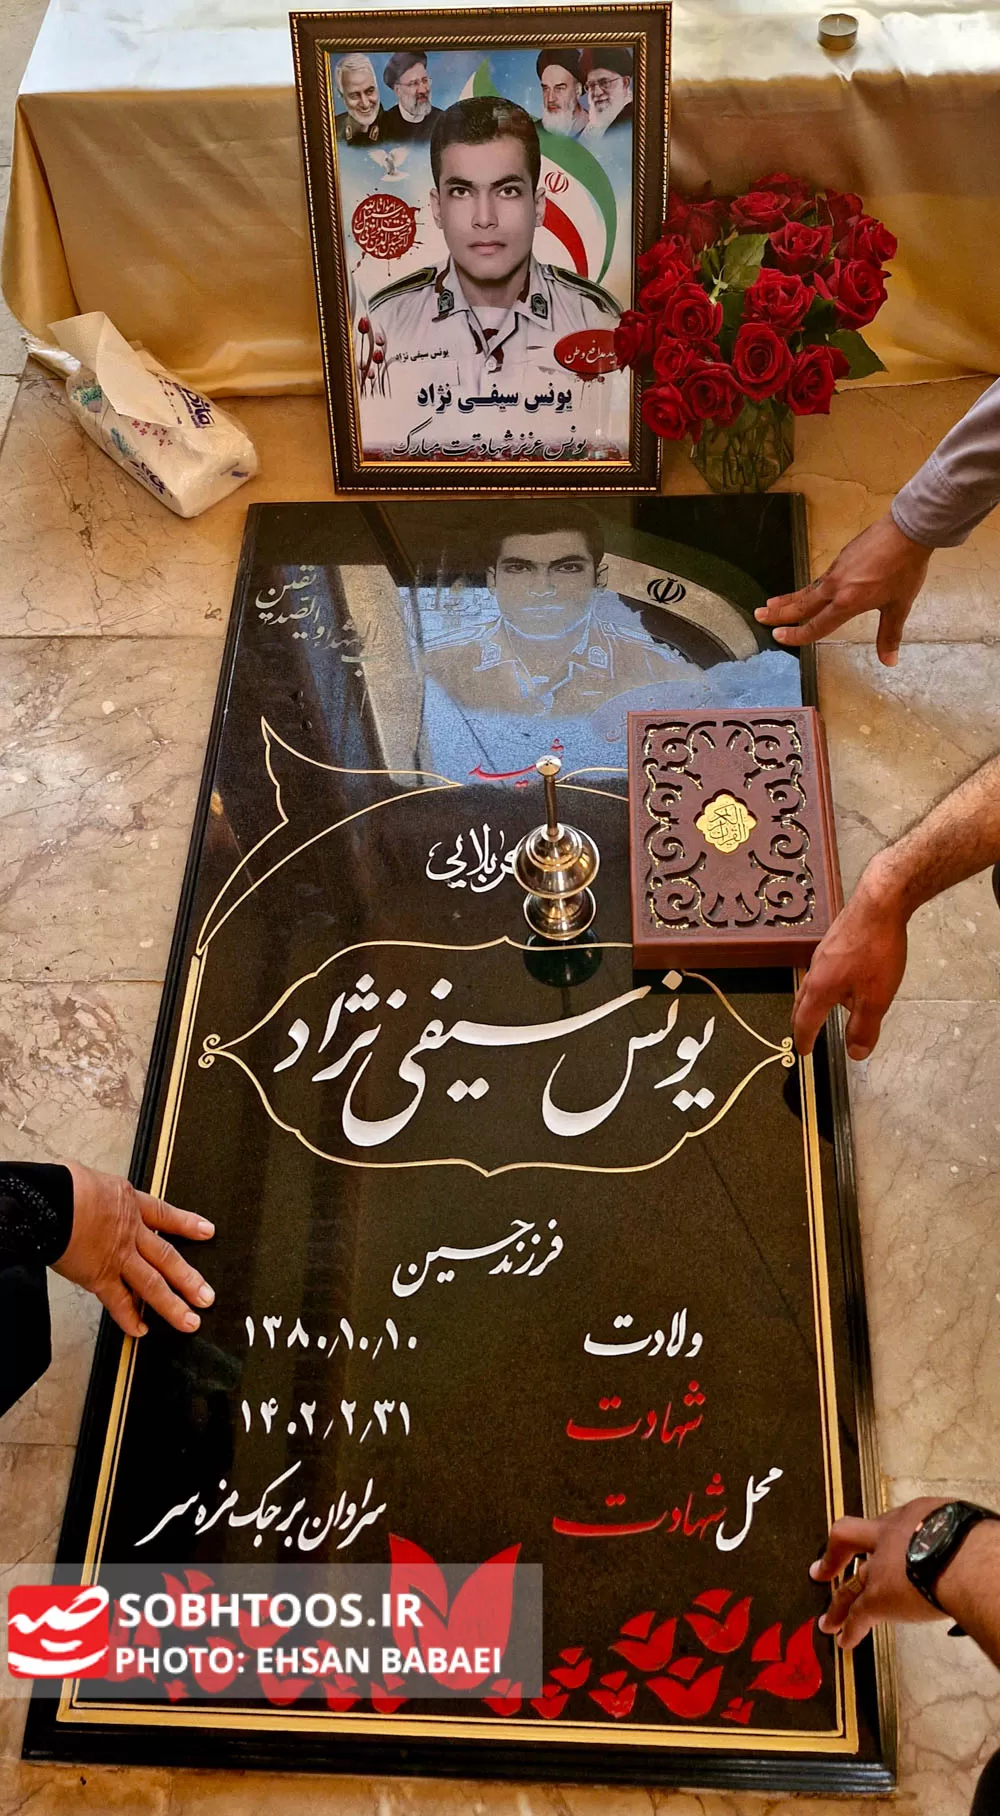 یونس سیفی نژاد
مدافع وطن
یونس سیفی نژاد
یونس عزیز شهادتت مبارک
الشهداء والصدیقین
شهید
کربلایی
القرآن الکریم
یونس سیفی نژاد
فرزند حسین
ولادت ۱۳۸۰/۱۰/۱۰
شهادت ۱۴۰۲/۲/۳۱
محل شهادت سراوان برجک مزه سر
SOBHTOOS.IR
PHOTO: EHSAN BABAEI